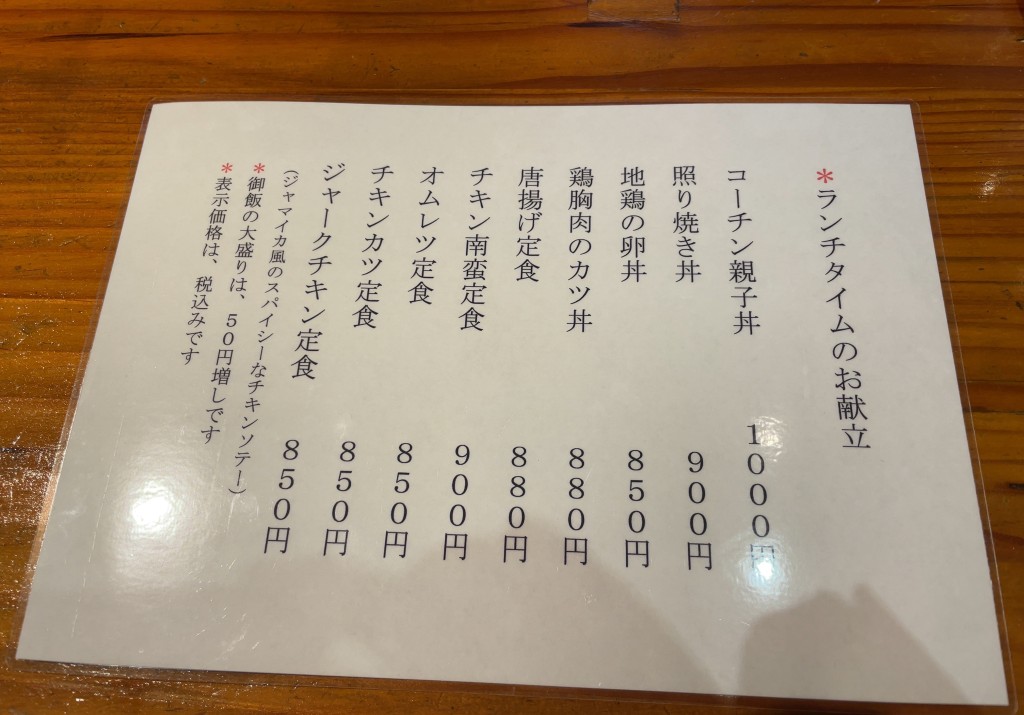 *ランチタイムのお献立
コーチン親子丼 1000円
照り焼き丼 900円
地鶏の卵丼 850円
鶏胸肉のカツ丼 880円
唐揚げ定食 880円
チキン南蛮定食 900円
オムレツ定食 850円
チキンカツ定食 850円
ジャークチキン定食 850円
(ジャマイカ風のスパイシーなチキンソテー)
*御飯の大盛りは、50円増しです
*表示価格は、税込みです